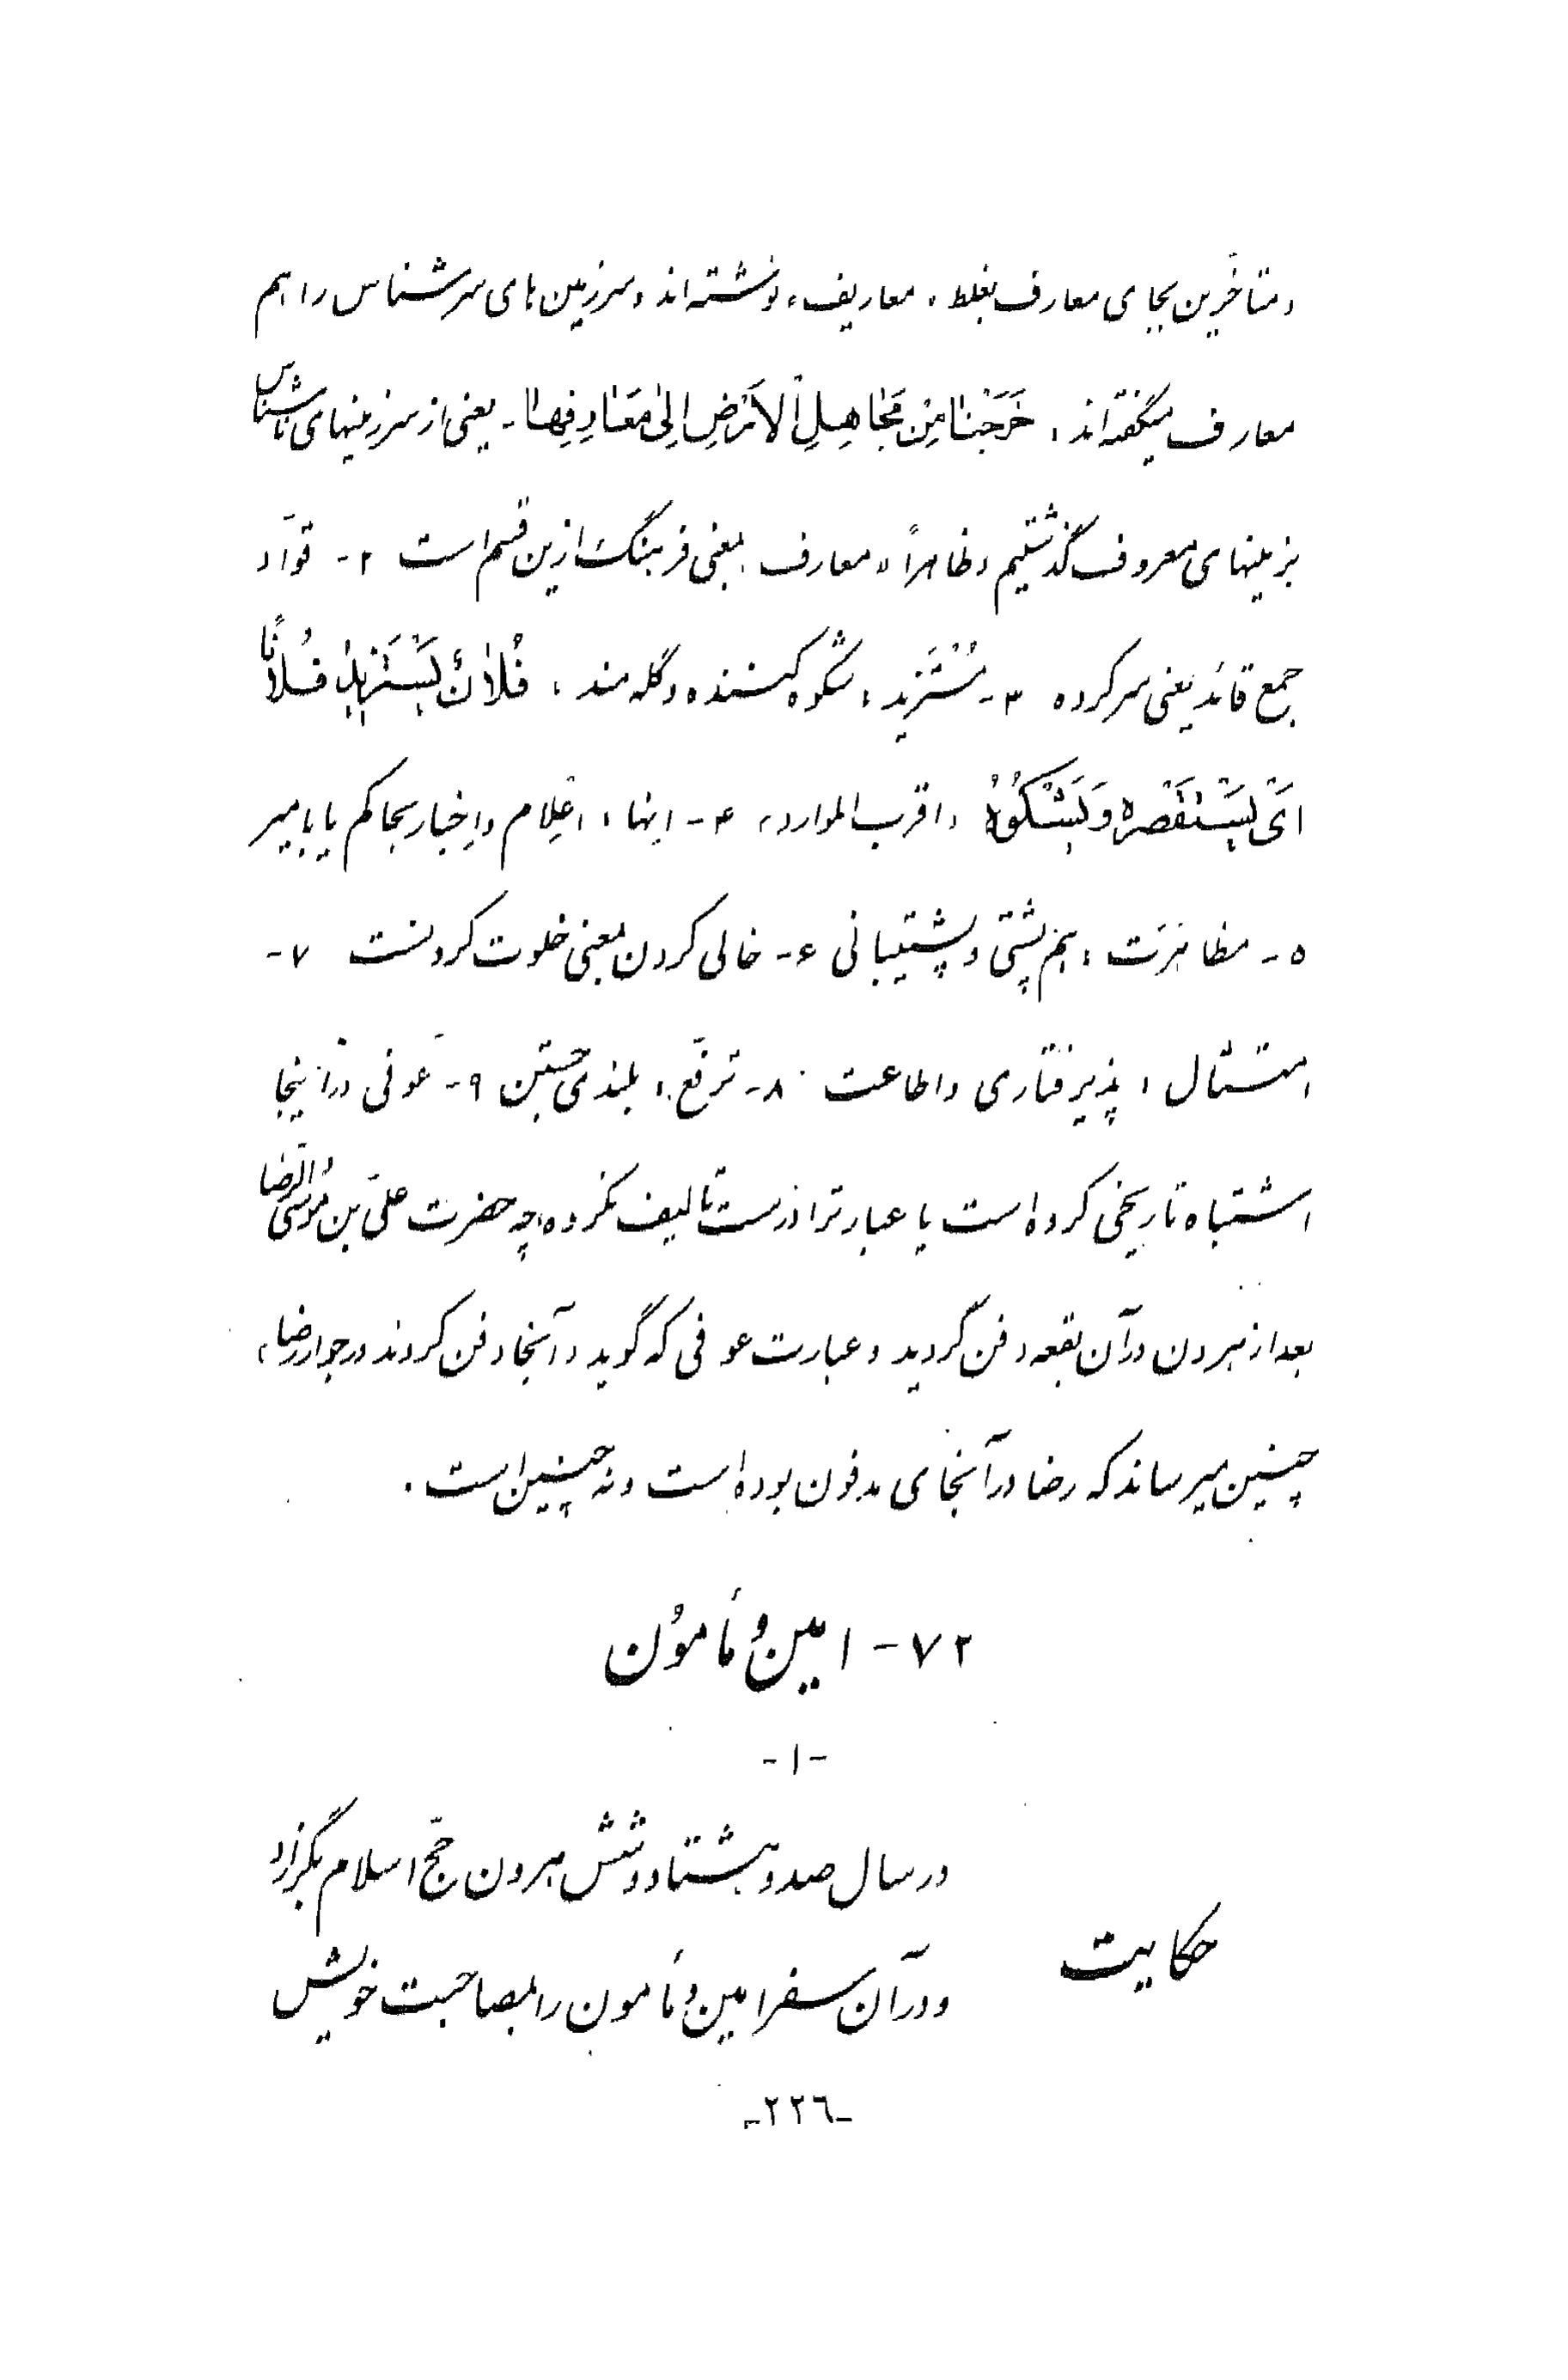 و متأخّرین بجای معارف بغلط «معاریف» نوشته‌اند و سرزمین‌های سرشناس را هم
معارف میگفته‌اند: خَرَجْنا مِنْ مَجاهِلِ الاَرْضِ اِلیٰ مَعارِفِها - یعنی از سرزمینهای ناشناس
بزمینهای معروف گذشتیم و ظاهراً «معارف» بمعنی فرهنگ ازین قسم است ۲- قوّاد
جمع قائد یعنی سرکرده ۳- مُسْتَزید: شکوه کننده و گله مند: فُلانٌ یَسْتَزیدُ فُلاناً
اَیْ یَسْتَقْصِرُه وَ یَشْکُوْهُ «اقرب الموارد» ۴- اِنها: اِعْلام و اِخبار بحاکم یا بامیر
۵- مظاهَرَت: هم پشتی و پشتیبانی ۶- خالی کردن بمعنی خلوت کردنست ۷-
امتثال: پذیرفتاری و اطاعت ۸- ترفّع: بلندی جستن ۹- عَوفی دراینجا
اشتباه تاریخی کرده است یا عبارترا درست تألیف نکرده، چه حضرت علیّ بن موسَی الرّضا
بعد از هرون در آن بقعه دفن گردید و عبارت عوفی که گوید «در آنجا دفن کردند در جوار رضا»
چنین میرساند که رضا در آنجای مدفون بوده است و نه چنین است.
۷۲- امین و مأمون
-۱-
در سال صد و هشتاد و شش هرون حجّ اسلام بگزارد
حکایت
و در آن سفر امین و مأمون را بمصاحبت خویش
-۲۲۶-